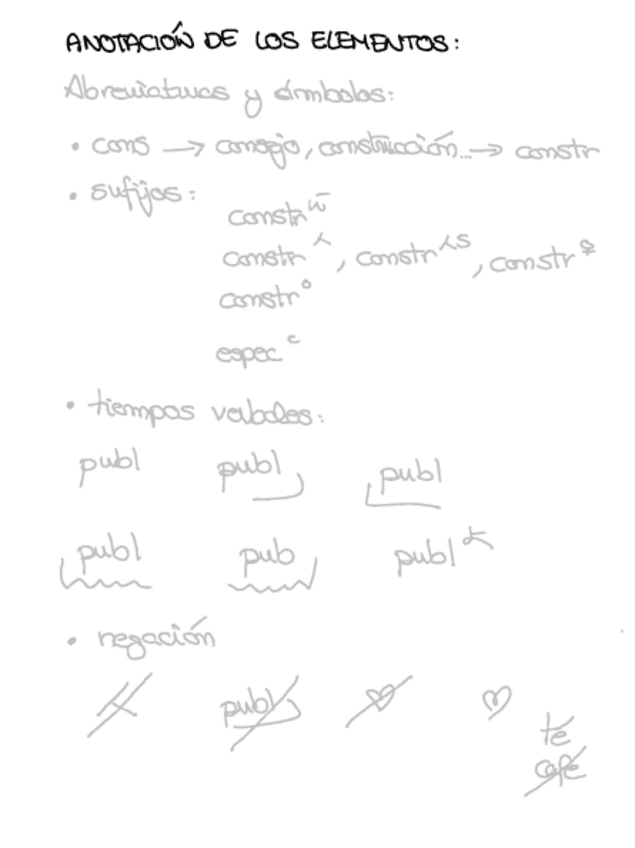 ANOTACIÓN DE LOS ELEMENTOS:
Abreviaturas y símbolos:
• cons → consejo, construcción... → constr
• sufijos:
constr
constr , constr ᴸS , constr
constr°
espec ᶜ
• tiempos verbales:
publ publ publ
publ pub publ
• negación
publ
té
café